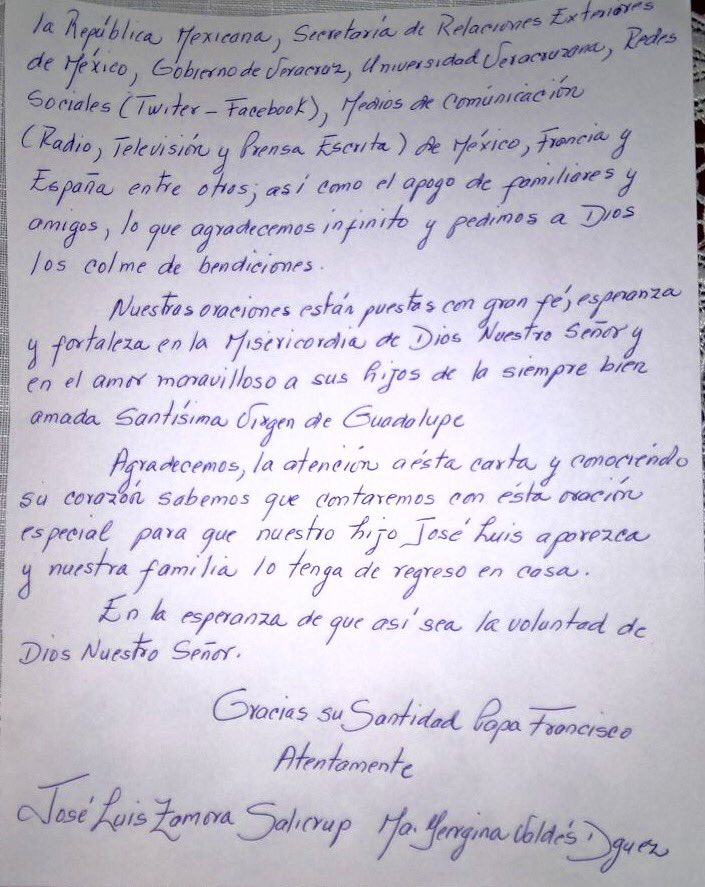 la República Mexicana, Secretaría de Relaciones Exteriores
de México, Gobierno de Veracruz, Universidad Veracruzana, Redes
Sociales (Twiter - Facebook), Medios de Comúnicación
(Radio, Televisión y Prensa Escrita) de México, Francia y
España entre otros; así como el apogo de familiares y
amigos, lo que agradecemos infinito y pedimos a Dios
los colme de bendiciones.
Nuestras oraciones están puestas con gran fé, esperanza
y fortaleza en la Misericordia de Dios Nuestro Señor y
en el amor maravilloso a sus hijos de la siempre bien
amada Santísima Virgen de Guadalupe
Agradecemos, la atención a ésta carta y conociendo
su corazón sabemos que contaremos con ésta oración
especial para que nuestro hijo José Luis aparezca
y nuestra familia lo tenga de regreso en casa.
En la esperanza de que así sea la voluntad de
Dios Nuestro Señor.
Gracias su Santidad Papa Francisco
Atentamente
José Luis Zamora Salicrup Ma. Valdés Dguez